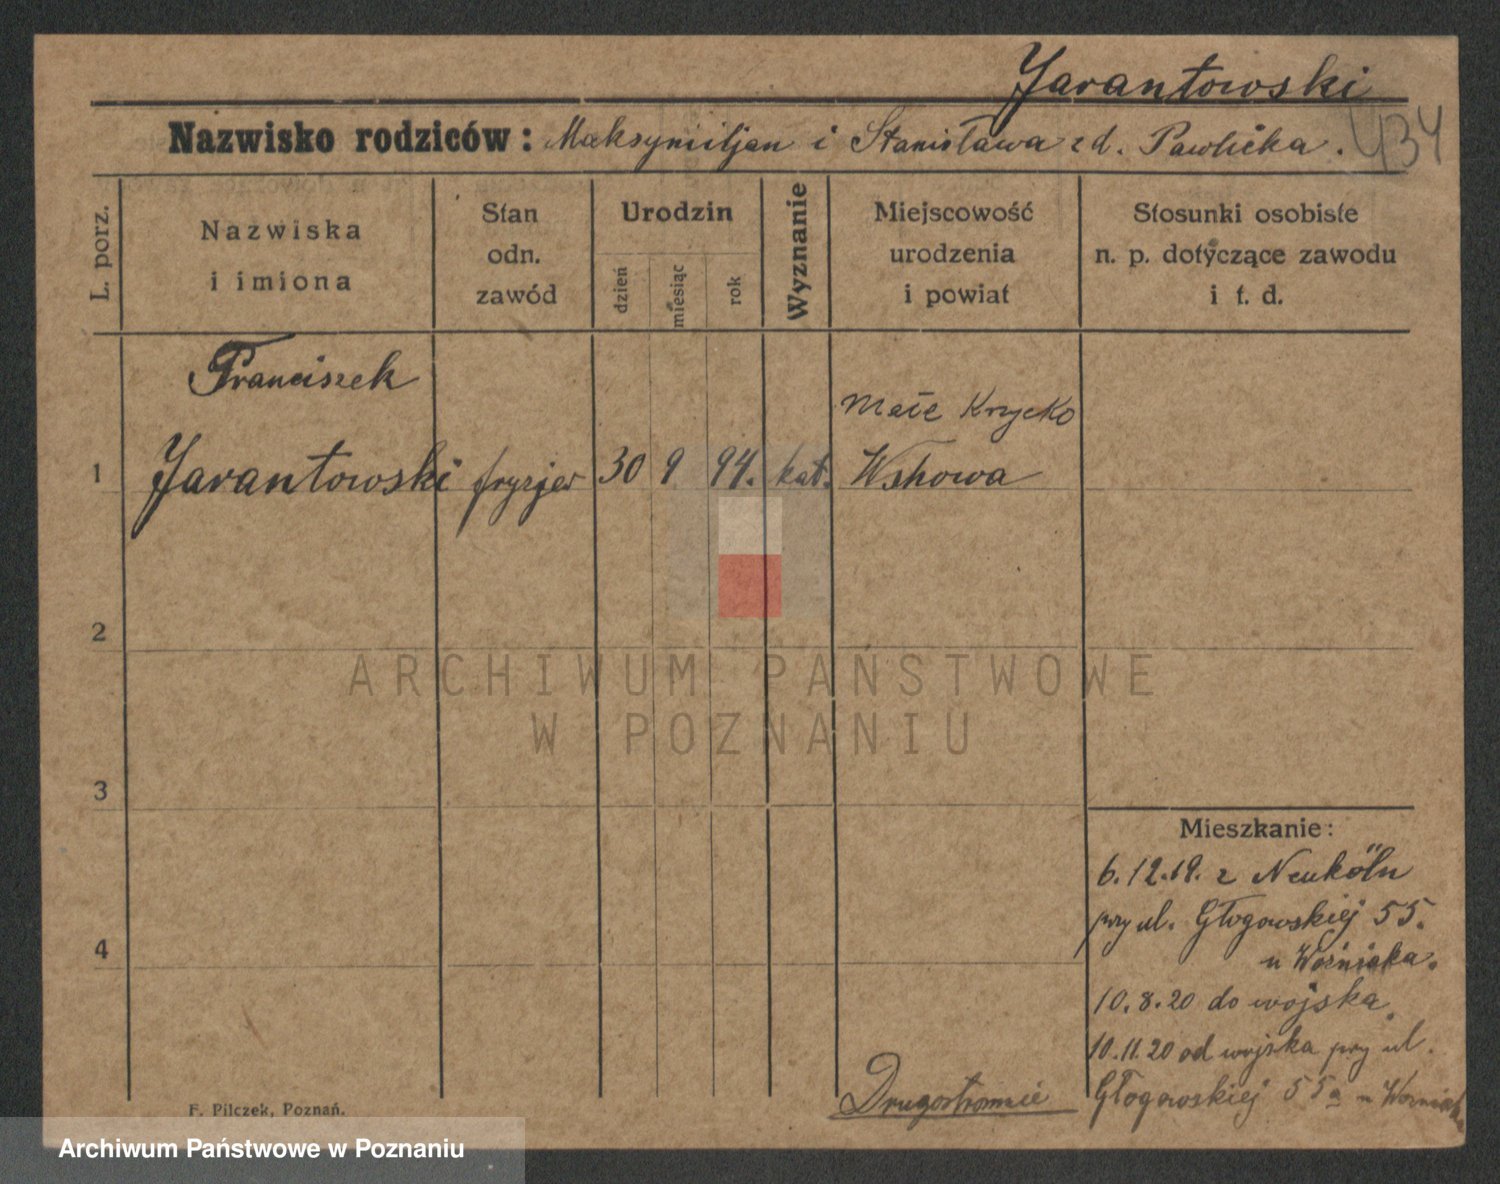 Jarantowski
434
Nazwisko rodziców: Maksymiljan i Stanisława z d. Pawlicka.
L. porz.
Nazwiska
i imiona
Stan
odn.
zawód
Urodzin
dzień
miesiąc
rok
Wyznanie
Miejscowość
urodzenia
i powiat
Stosunki osobiste
n. p. dotyczące zawodu
i t. d.
Franciszek
Małe Krzycko
1 Jarantowski fryzjer 30 9 94. kat. Wshowa
2
ARCHIWUM PAŃSTWOWE
W POZNANIU
3
4
Mieszkanie:
6.12.19. z Neuköln
przy ul. Głogowskiej 55.
u Woźniaka.
10.8.20 do wojska.
10.11.20 od wojska przy ul.
Głogowskiej 55a u Woźniaka
Drugostronnie
F. Pilczek, Poznań.
Archiwum Państwowe w Poznaniu